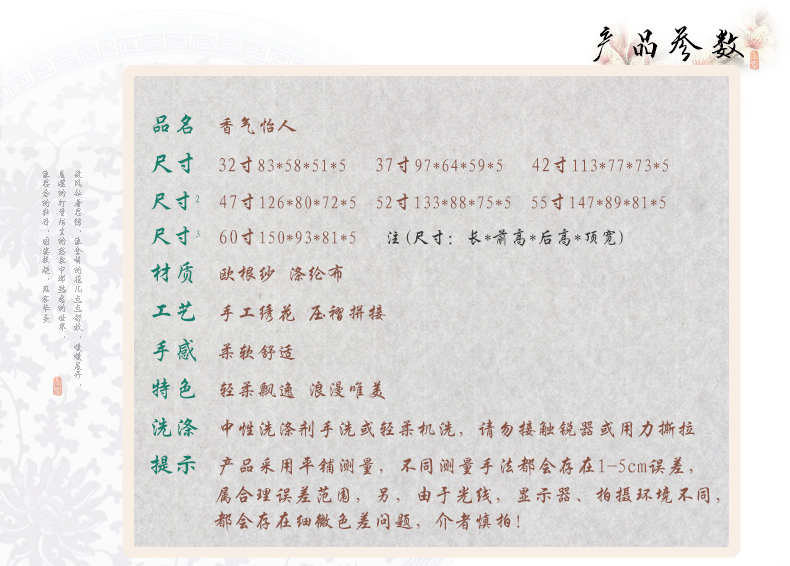 产品参数
品名 香气怡人
尺寸 32寸83*58*51*5 37寸97*64*59*5 42寸113*77*73*5
尺寸2 47寸126*80*72*5 52寸133*88*75*5 55寸147*89*81*5
尺寸3 60寸150*93*81*5 注(尺寸：长*前高*后高*顶宽)
材质 欧根纱 涤纶布
工艺 手工绣花 压褶拼接
手感 柔软舒适
特色 轻柔飘逸 浪漫唯美
洗涤 中性洗涤剂手洗或轻柔机洗，请勿接触锐器或用力撕拉
提示 产品采用平铺测量，不同测量手法都会存在1-5cm误差，
属合理误差范围，另，由于光线，显示器、拍摄环境不同，
都会存在细微色差问题，介者慎拍！